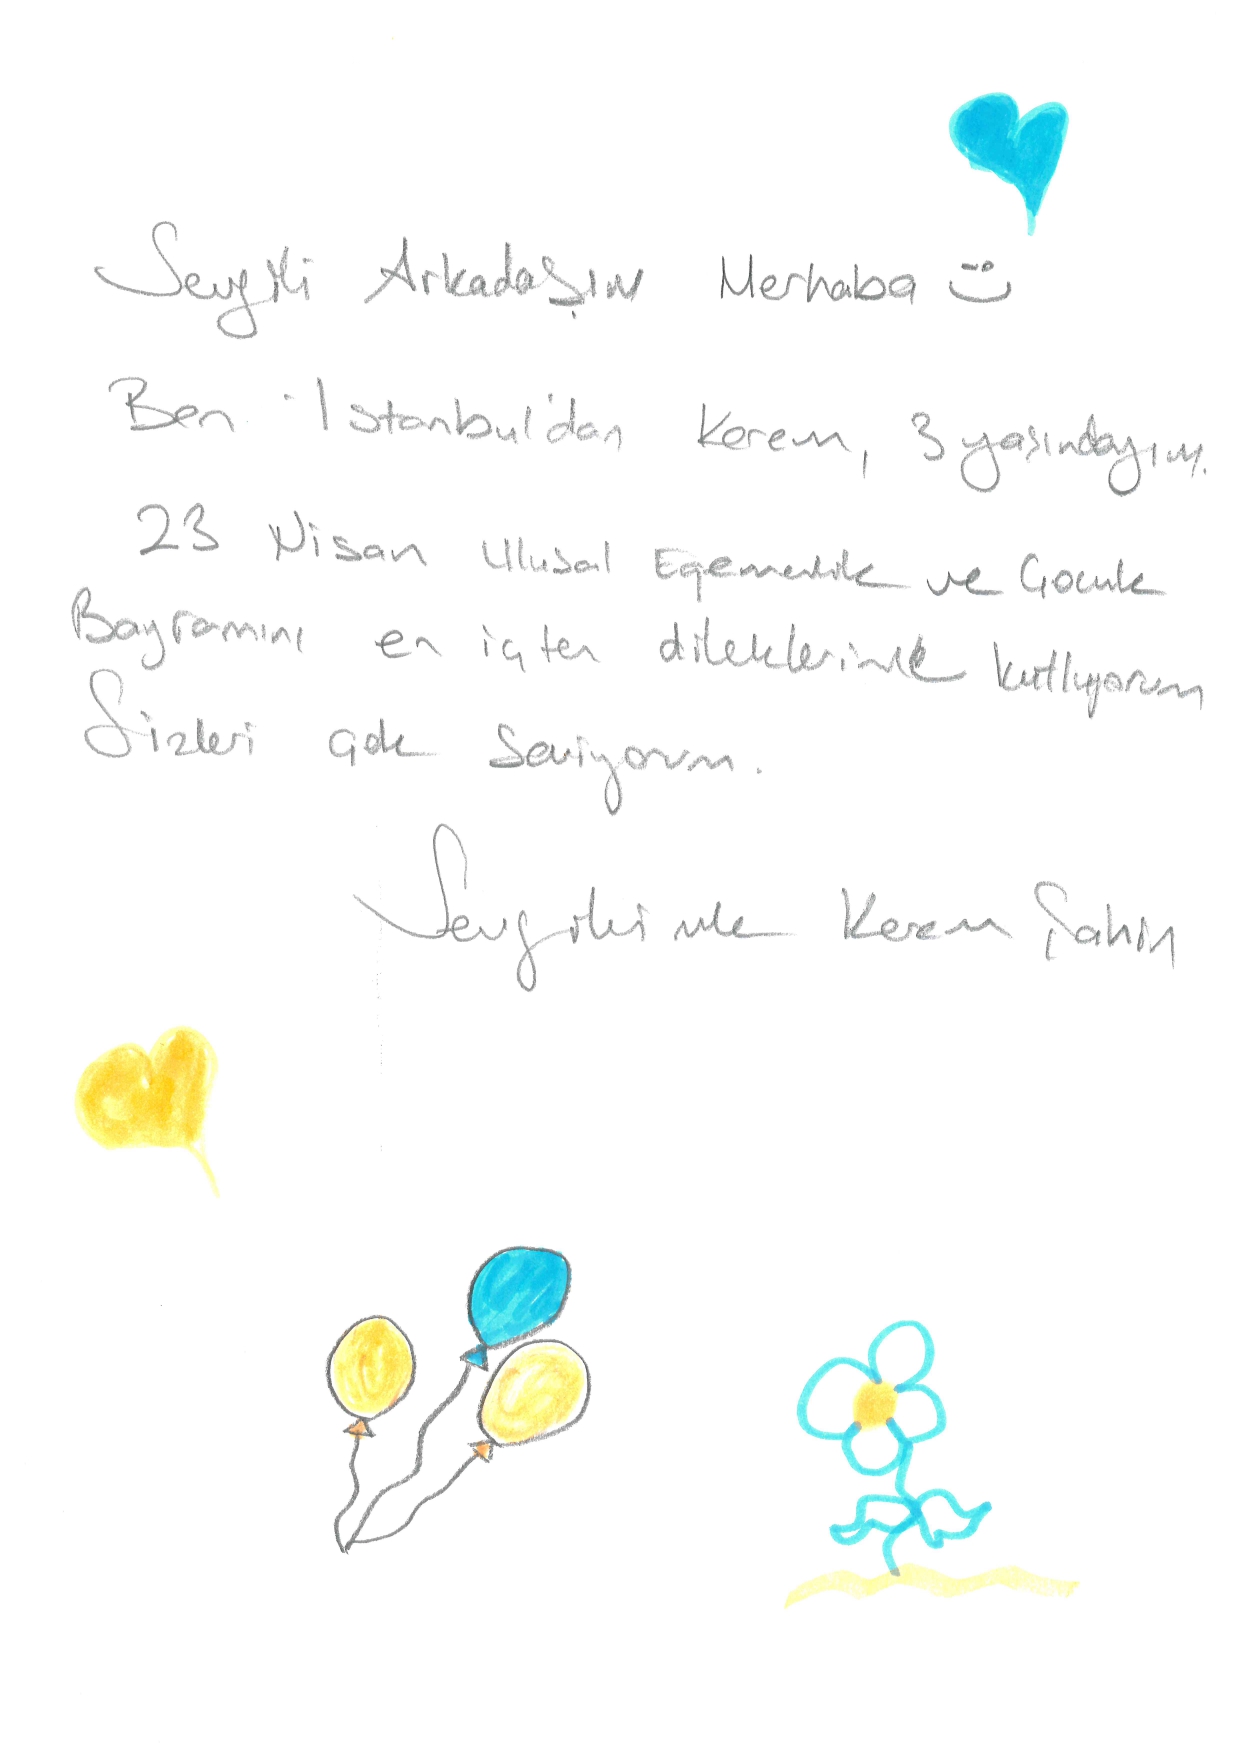 Sevgili Arkadaşım Merhaba
Ben İstanbul'dan Kerem, 3 yaşındayım.
23 Nisan Ulusal Egemenlik ve Çocuk
Bayramını en içten dileklerimle kutluyorum
Sizleri çok seviyorum.
Sevgilerimle Kerem Şahin